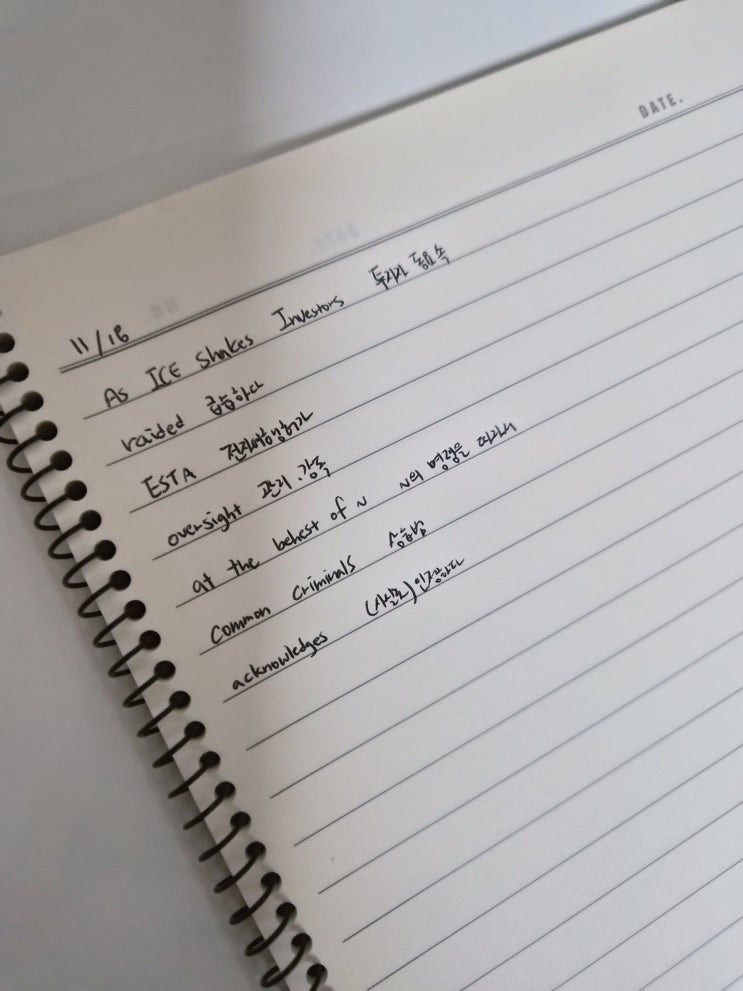 DATE.
11/18
As ICE Shakes Investors 투자자 동요 속
raided 급습하다
ESTA 전자여행허가
oversight 관리.감독
at the behest of ~ ~의 명령을 따라서
common criminals 잡범
acknowledges (사실로)인정하다